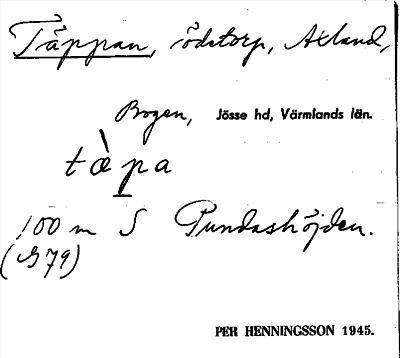 Täppan, ödetorp, Axland,
Bogen, Jösse hd, Värmlands län.
tæ̀pa
100 m S Pundashöjden.
(G79)
PER HENNINGSSON 1945.